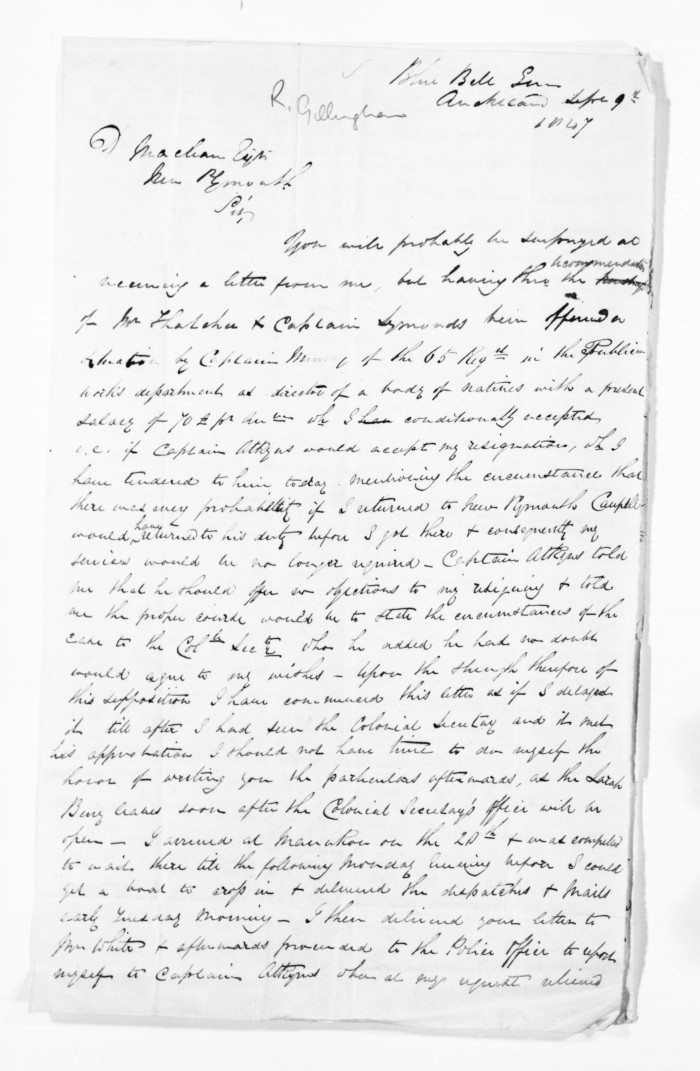 Blue Bell Inn
Auckland Sept 9th
1847
R. Gillingham
D McLean Esqr
New Plymouth
Sir,
You will probably be surprized at
recommendation
receiving a letter from me, but having thro the
of Mr Thatcher & Captain Symonds been offered a
situation by Captain of the 65 Regt in the Public
works department as director of a body of natives with a present
salary of 70£ pr Annm wh I conditionally accepted
i.e. if Captain Atkyns would accept my resignation, wh I
have tendered to him today. Mentioning the circumstance that
there was every probability if I returned to New Plymouth Campbell
would have returned to his duty before I got there & consequently my
services would be no longer required – Captain Atkyns told
me that he should offer no objections to my resigning & told
me the proper course would be to state the circumstances of the
case to the Colnl Secty who he added he had no doubt
would agree to my wishes – Upon the strength therefore of
this supposition I have commenced this letter as if I delayed
it till after I had seen the Colonial Secretary and it met
his approbation I should not have time to do myself the
honor of writing you the particulars afterwards, as the Sarah
Berry leaves soon after the Colonial Secretary's Office will be
open – I arrived at Manukau on the 28th & was compelled
to wait there till the following Monday Evening before I could
get a boat to crop in & delivered the dispatches & Mails
early Tuesday Morning – I then delivered your letter to
Mr White & afterwards proceeded to the Police Office to report
myself to Captain Atkyns who at my request relieved